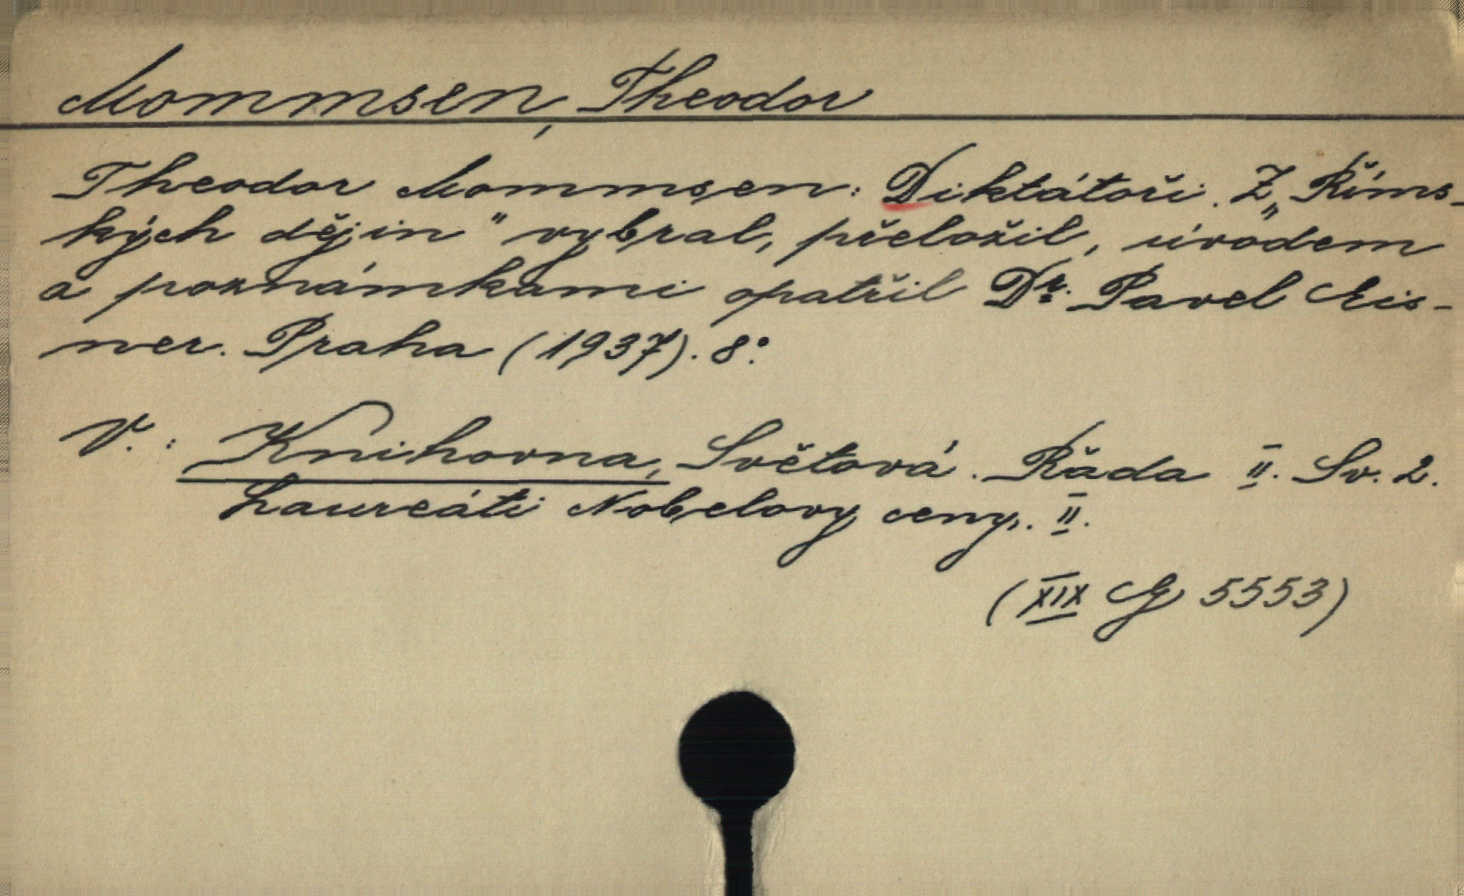 Mommsen, Theodor
Theodor Mommsen: Diktátoři. Z „Říms-
kých dějin" vybral, přeložil, úvodem
a poznámkami opatřil Dr. Pavel Eis-
ner. Praha (1937). 8°.
V.: Knihovna, Světová. Řada II. Sv. 2.
Laureáti Nobelovy ceny. II.
(XIX G 5553)